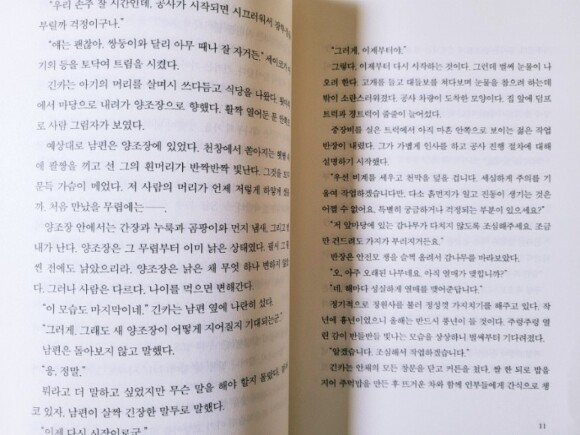 "우리 손주 잘 시간인데, 공사가 시작되면 시끄러워서
부릴까 걱정이구나."
"얘는 괜찮아. 쌍둥이와 달리 아무 때나 잘 자거든."
기의 등을 토닥여 트림을 시켰다.
긴카는 아기의 머리를 살며시 쓰다듬고 식당을 나왔다.
에서 마당으로 내려가 양조장으로 향했다. 활짝 열어둔 문 안
로 사람 그림자가 보였다.
예상대로 남편은 양조장에 있었다. 천창에서 쏟아지는 햇볕
에 팔짱을 끼고 선 그의 흰머리가 반짝반짝 빛난다. 그것을
문득 가슴이 메었다. 저 사람의 머리가 언제 저렇게 하얗게
까. 처음 만났을 무렵에는――.
양조장 안에서는 간장과 누룩과 곰팡이와 먼지 냄새, 그리고
내가 난다. 양조장은 그 무렵부터 이미 낡은 상태였다.
씬 전에도 낡았으리라. 양조장은 낡은 채 무엇 하나 변하지
다. 그러나 사람은 다르다. 나이를 먹으면 변해간다.
"이 모습도 마지막이네." 긴카는 남편 옆에 나란히 섰다.
"그러게. 그래도 새 양조장이 어떻게 지어질지 기대되는군."
남편은 돌아보지 않고 말했다.
"응, 정말."
뭐라고 더 말하고 싶었지만 무슨 말을 해야 할지 몰랐다.
코 있자, 남편이 살짝 긴장한 말투로 말했다.
"이제 다시 시작이로군."
"그러게, 이제부터야."
그렇다. 이제부터 다시 시작하는 것이다. 그런데 벌써 눈물이 나
오려 한다. 고개를 들고 대들보를 쳐다보며 눈물을 참으려 하는데
밖이 소란스러워졌다. 공사 차량이 도착한 모양이다. 집 앞에 덤프
트럭과 경트럭이 줄줄이 늘어섰다.
중장비를 실은 트럭에서 아직 마흔 안쪽으로 보이는 젊은 작업
반장이 내렸다. 그가 가볍게 인사를 하고 공사 진행 절차에 대해
설명하기 시작했다.
"우선 비계를 세우고 천막을 덮을 겁니다. 세심하게 주의를 기
울여 작업하겠습니다만, 다소 흙먼지가 일고 진동이 생기는 것은
어쩔 수 없어요. 특별히 궁금하거나 걱정되는 부분이 있으세요?"
"저 앞마당에 있는 감나무가 다치지 않도록 조심해주세요. 조금
만 건드려도 가지가 부러지거든요."
반장은 안전모 챙을 슬쩍 올려서 감나무를 바라보았다.
"오, 아주 오래된 나무네요. 아직 열매가 맺힙니까?"
"네. 해마다 성실하게 열매를 맺어준답니다."
정기적으로 정원사를 불러 정성껏 가지치기를 해주고 있다. 작
년에 흉년이었으니 올해는 반드시 풍년이 들 것이다. 주렁주렁 열
린 감이 반들반들 빛나는 모습을 상상하니 벌써부터 기다려졌다.
"알겠습니다. 조심해서 작업하겠습니다."
긴카는 안채의 모든 창문을 닫고 커튼을 쳤다. 쌀 한 되로 밥을
지어 주먹밥을 만든 후 뜨거운 차와 함께 인부들에게 간식으로 챙
11